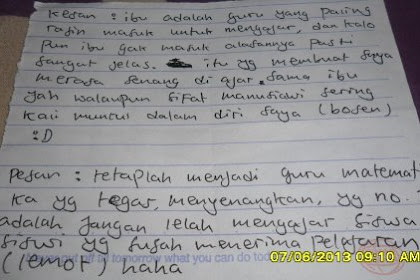 Kesan : ibu adalah guru yang paling
rajin masuk untuk mengajar, dan kalo
pun ibu gak masuk alasannya pasti
sangat jelas. itu yg membuat saya
merasa senang di ajar sama ibu
yah walaupun sifat manusiawi sering
kali muncul dalam diri saya (bosen)
:D
Pesan : tetaplah menjadi guru matemat
ka yg tegar, menyenangkan, yg no.
adalah jangan lelah mengajar siswa
siswi yg susah menerima pelajaran
tomorrow what you can do
(lemot) haha
07/06/2013 09:10 AM